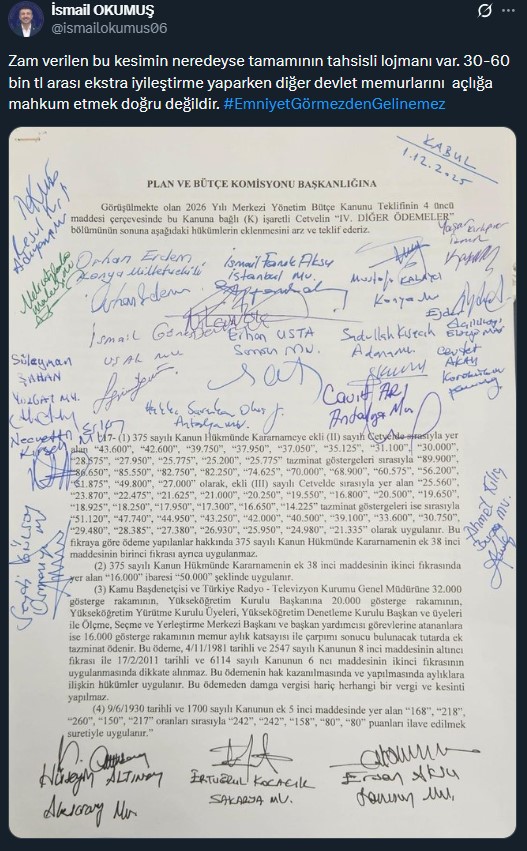 İsmail OKUMUŞ
@ismailokumus06
Zam verilen bu kesimin neredeyse tamamının tahsisli lojmanı var. 30-60
bin tl arası ekstra iyileştirme yaparken diğer devlet memurlarını açlığa
mahkum etmek doğru değildir. #EmniyetGörmezdenGelinemez
KABUL
1.12.2025
PLAN VE BÜTÇE KOMİSYONU BAŞKANLIĞINA
Görüşülmekte olan 2026 Yılı Merkezi Yönetim Bütçe Kanunu Teklifinin 4 üncü
maddesi çerçevesinde bu Kanuna bağlı (K) işaretli Cetvelin "IV. DİĞER ÖDEMELER"
bölümünün sonuna aşağıdaki hükümlerin eklenmesini arz ve teklif ederiz.
Orhan Erdem
Konya Milletvekili
İsmail Faruk Aksu
İstanbul Mv.
Mustafa KALAYCI
Konya Mv
Erhan USTA
Samsun Mv.
Sadullah Kısacık
Adana mv.
Süleyman
ŞAHAN
YOZGAT MV.
Cavit ARI
Antalya Mv.
17- (1) 375 sayılı Kanun Hükmünde Kararnameye ekli (II) sayılı Cetvelde sırasıyla yer
alan "43.600", "42.600", "39.750", "37.950", "37.050", "35.125", "31.100", "30.000",
"28.575", "27.950", "25.775", "25.200", "25.775" tazminat göstergeleri sırasıyla "89.900",
"86.650", "85.550", "82.750", "82.250", "74.625", "70.000", "68.900", "60.575", "56.200",
"51.875", "49.800", "27.000" olarak, ekli (III) sayılı Cetvelde sırasıyla yer alan "25.560",
"23.870", "22.475", "21.625", "21.000", "20.250", "19.550", "16.800", "20.500", "19.650",
"18.925", "18.250", "17.950", "17.300", "16.650", "14.225" tazminat göstergeleri ise sırasıyla
"51.120", "47.740", "44.950", "43.250", "42.000", "40.500", "39.100", "33.600", "30.750",
"29.480", "28.385", "27.380", "26.930", "25.950", "24.980", "21.335" olarak uygulanır. Bu
fıkraya göre ödeme yapılanlar hakkında 375 sayılı Kanun Hükmünde Kararnamenin ek 38 inci
maddesinin birinci fıkrası ayrıca uygulanmaz.
(2) 375 sayılı Kanun Hükmünde Kararnamenin ek 38 inci maddesinin ikinci fıkrasında
yer alan "16.000" ibaresi "50.000" şeklinde uygulanır.
(3) Kamu Başdenetçisi ve Türkiye Radyo - Televizyon Kurumu Genel Müdürüne 32.000
gösterge rakamının, Yükseköğretim Kurulu Başkanına 20.000 gösterge rakamının,
Yükseköğretim Yürütme Kurulu Üyeleri, Yükseköğretim Denetleme Kurulu Başkan ve üyeleri
ile Ölçme, Seçme ve Yerleştirme Merkezi Başkanı ve başkan yardımcısı görevlerine atananlara
ise 16.000 gösterge rakamının memur aylık katsayısı ile çarpımı sonucu bulunacak tutarda ek
tazminat ödenir. Bu ödeme, 4/11/1981 tarihli ve 2547 sayılı Kanunun 8 inci maddesinin altıncı
fıkrası ile 17/2/2011 tarihli ve 6114 sayılı Kanunun 6 ncı maddesinin ikinci fıkrasının
uygulanmasında dikkate alınmaz. Bu ödemenin hak kazanılmasında ve yapılmasında aylıklara
ilişkin hükümler uygulanır. Bu ödemeden damga vergisi hariç herhangi bir vergi ve kesinti
yapılmaz.
(4) 9/6/1930 tarihli ve 1700 sayılı Kanunun ek 5 inci maddesinde yer alan "168", "218",
"260", "150", "217" oranları sırasıyla "242", "242", "158", "80", "80" puanları ilave edilmek
suretiyle uygulanır."
Hüseyin ALTINSOY
Aksaray Mv.
ERTUĞRUL KOCACIK
SAKARYA MV.
Ersan Aksu
Samsun Mv.